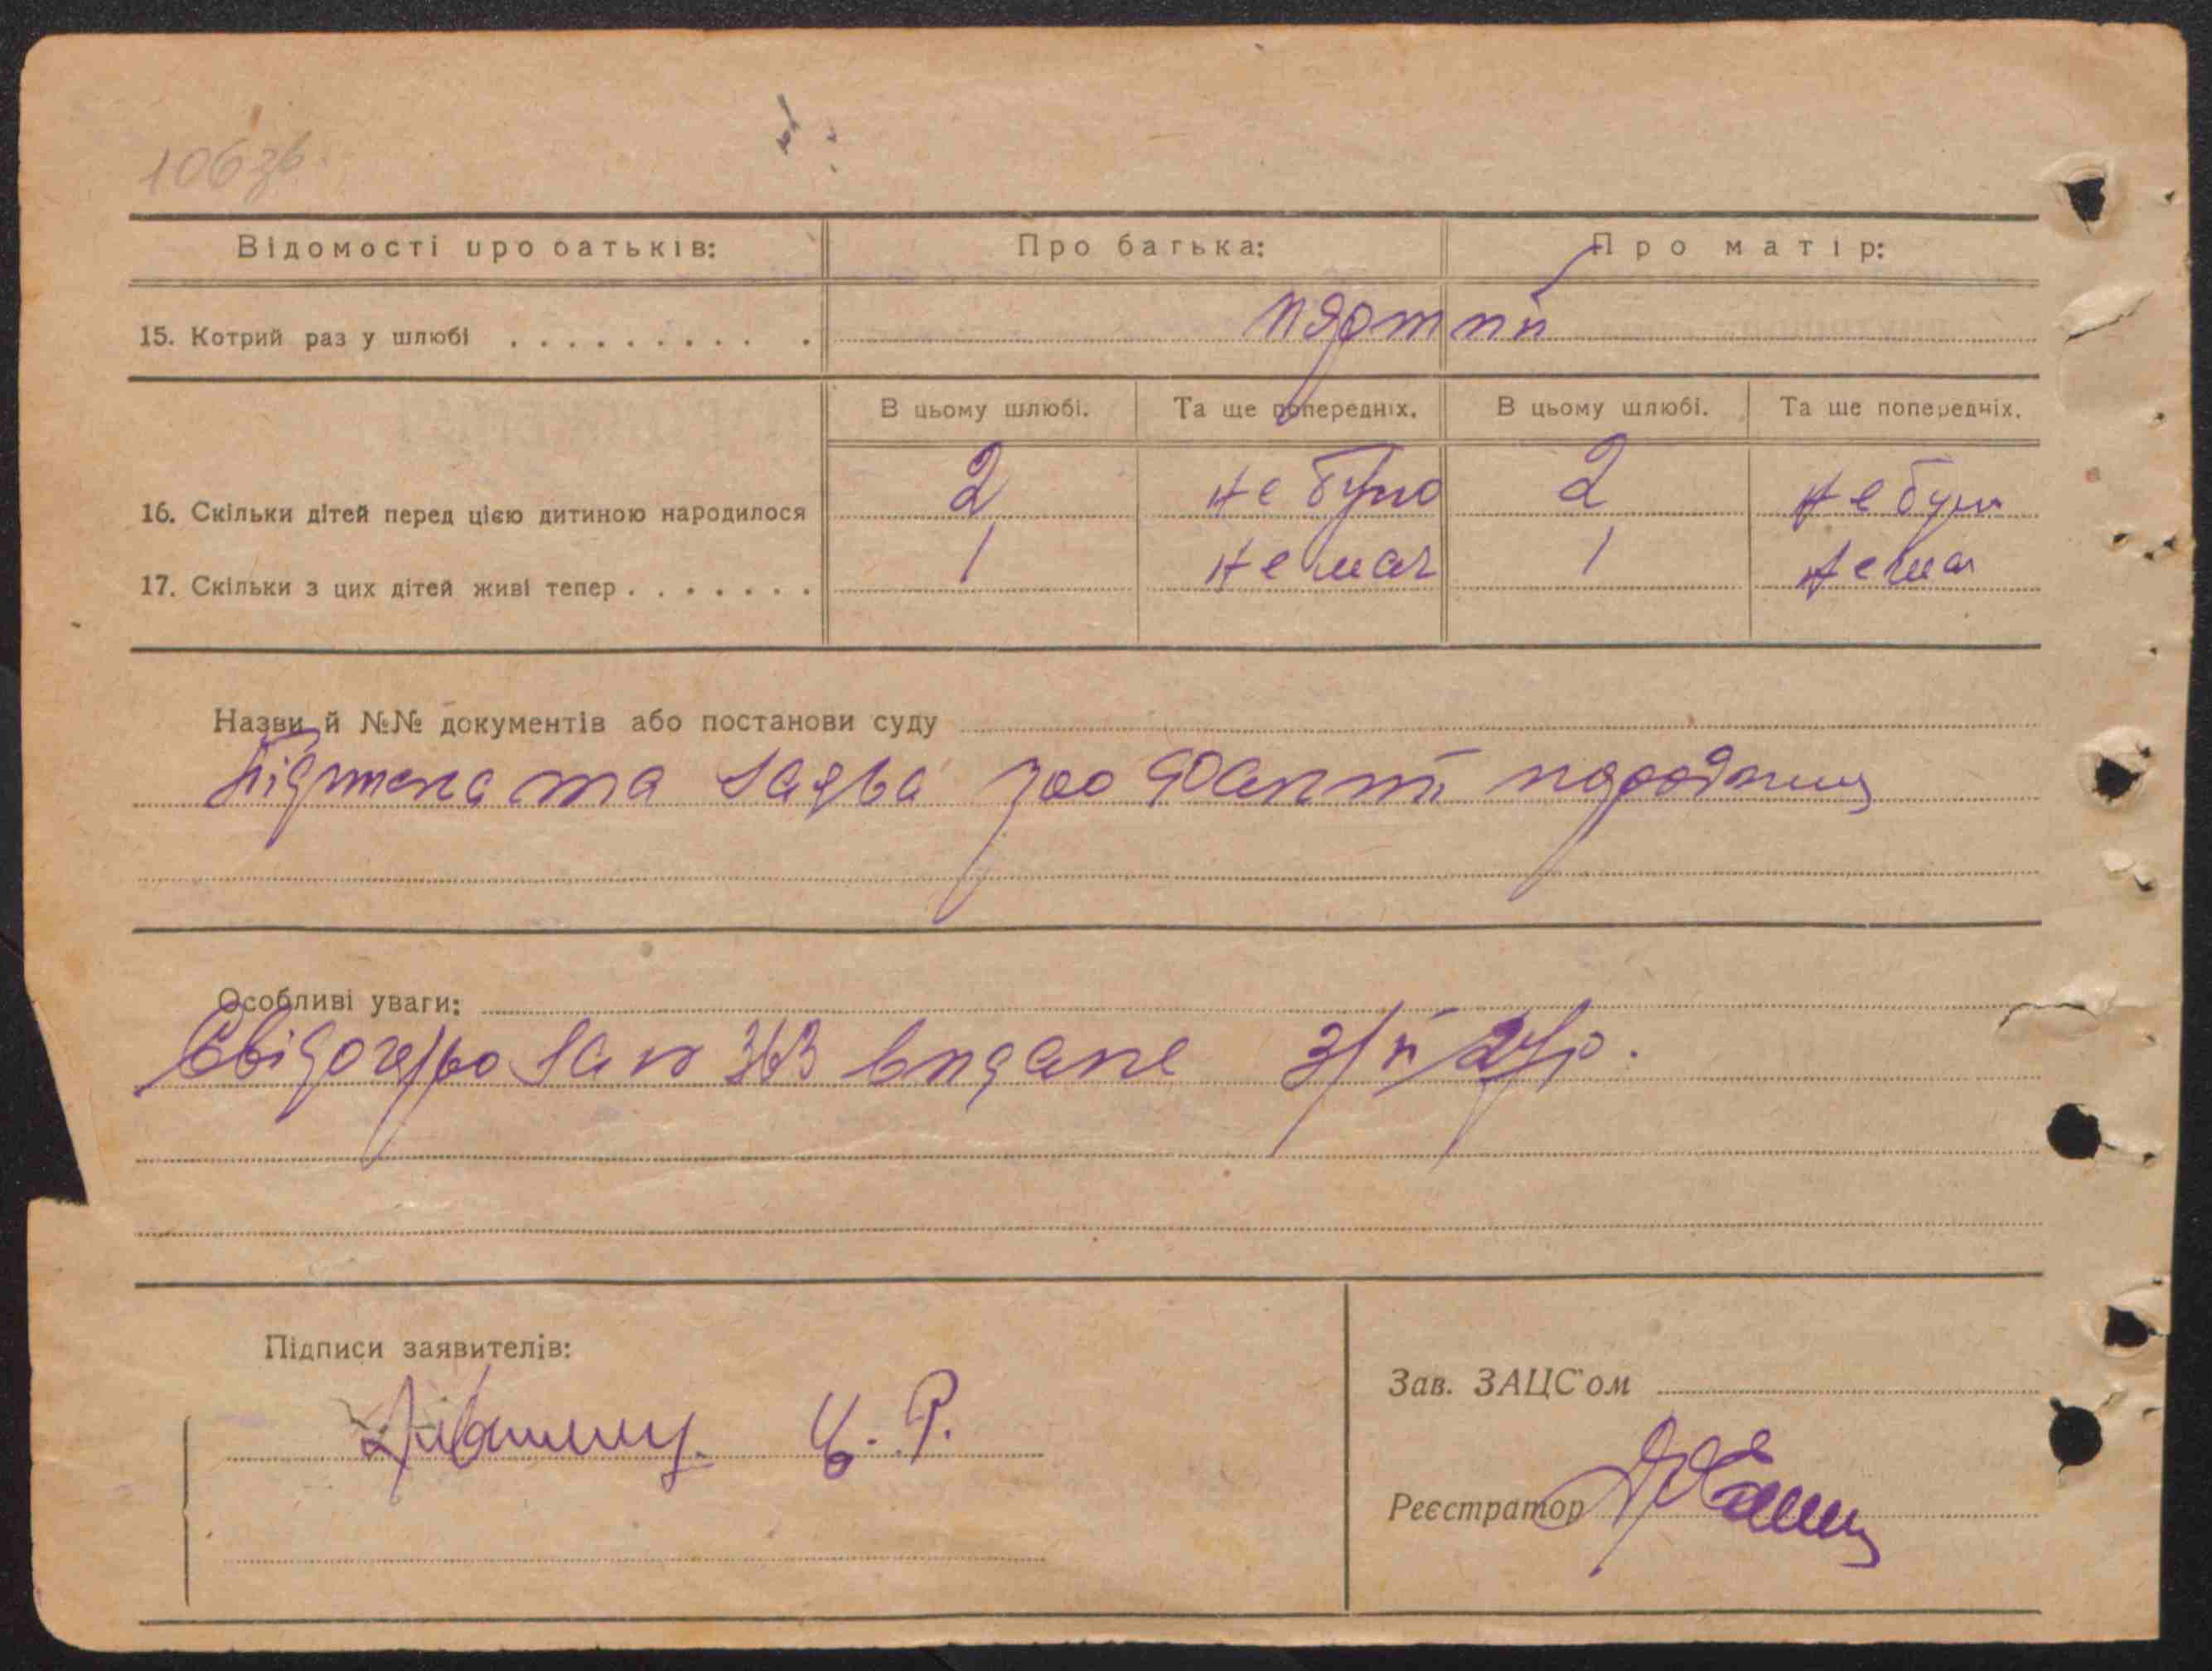 106 зв.
Відомості про батьків: Про батька: Про матір:
15. Котрий раз у шлюбі . . . . . . . . . .
В цьому шлюбі. Та ще попередніх. В цьому шлюбі. Та ще попередніх.
16. Скільки дітей перед цією дитиною народилося 2 не було 2 не було
17. Скільки з цих дітей живі тепер . . . . . . . 1 немає 1 нема
Назви й №№ документів або постанови суду
та заява про
Особливі уваги:
Свідоцтво за № 363 видане
Підписи заявителів:
Зав. ЗАЦС'ом
Реєстратор